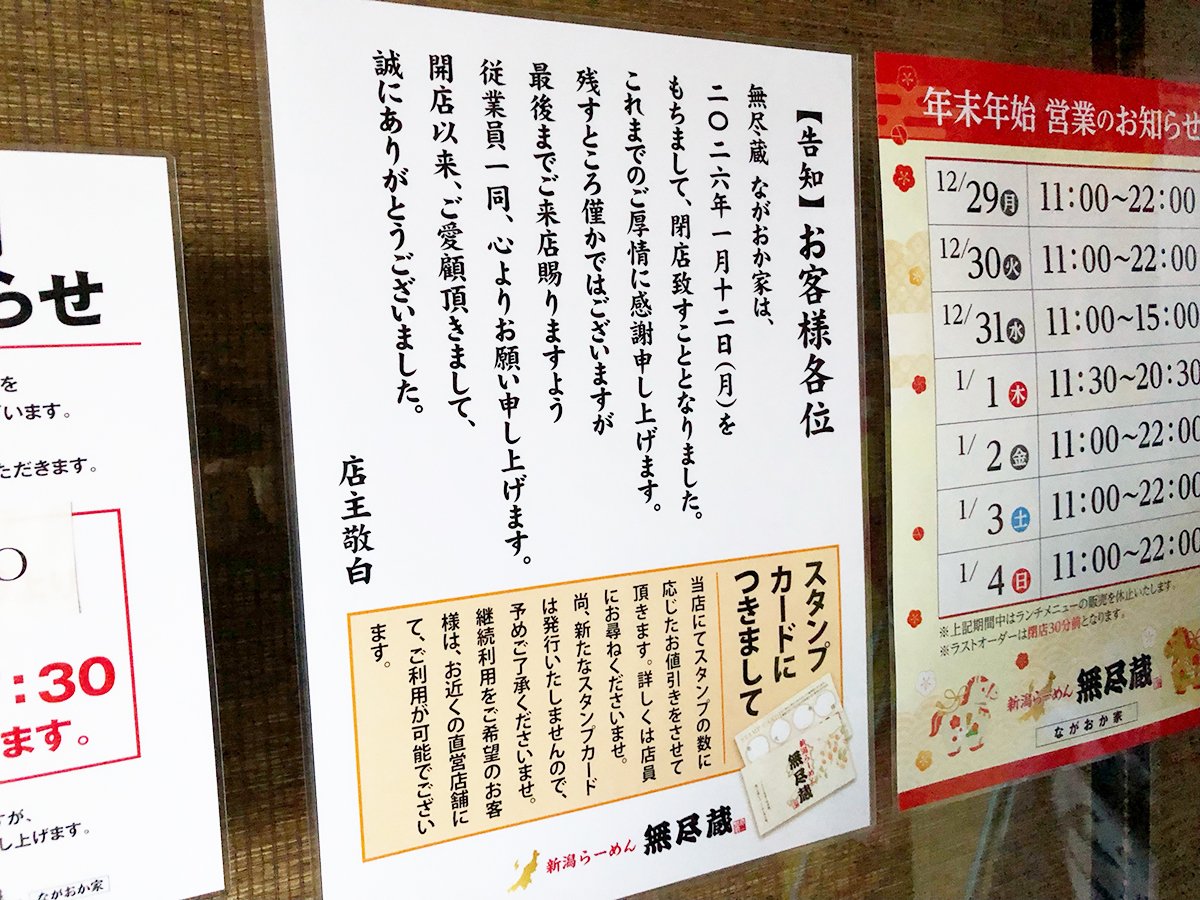 らせ
を
います。
ただきます。
:30
ます。
すが、
し上げます。
ながおか家
【告知】お客様各位
無尽蔵 ながおか家は、
二〇二六年一月十二日（月）を
もちまして、閉店致すこととなりました。
これまでのご厚情に感謝申し上げます。
残すところ僅かではございますが
最後までご来店賜りますよう
従業員一同、心よりお願い申し上げます。
開店以来、ご愛顧頂きまして、
誠にありがとうございました。
店主敬白
スタンプ
カードに
つきまして
当店にてスタンプの数に
応じたお値引きをさせて
頂きます。詳しくは店員
にお尋ねくださいませ。
尚、新たなスタンプカード
は発行いたしませんので、
予めご了承くださいませ。
継続利用をご希望のお客
様は、お近くの直営店舗に
て、ご利用が可能でござい
ます。
無尽蔵
新潟らーめん 無尽蔵
年末年始 営業のお知らせ
12/29月 11:00~22:00
12/30火 11:00~22:00
12/31水 11:00~15:00
1/1木 11:30~20:30
1/2金 11:00~22:00
1/3土 11:00~22:00
1/4日 11:00~22:00
※上記期間中はランチメニューの販売を休止いたします。
※ラストオーダーは閉店30分前となります。
新潟らーめん 無尽蔵
ながおか家